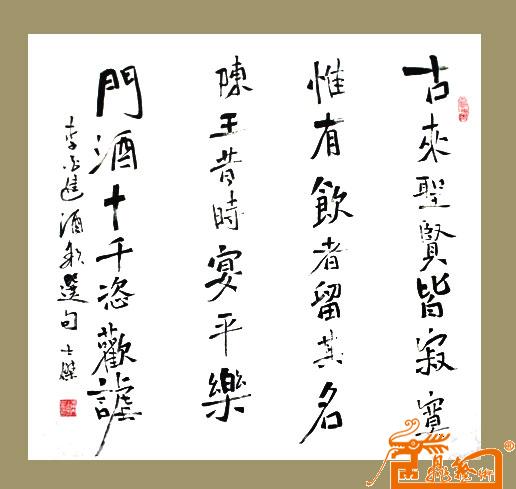 古來聖賢皆寂寞
惟有飲者留其名
陳王昔時宴平樂
門酒十千恣歡謔
李白進酒歌選句 士傑